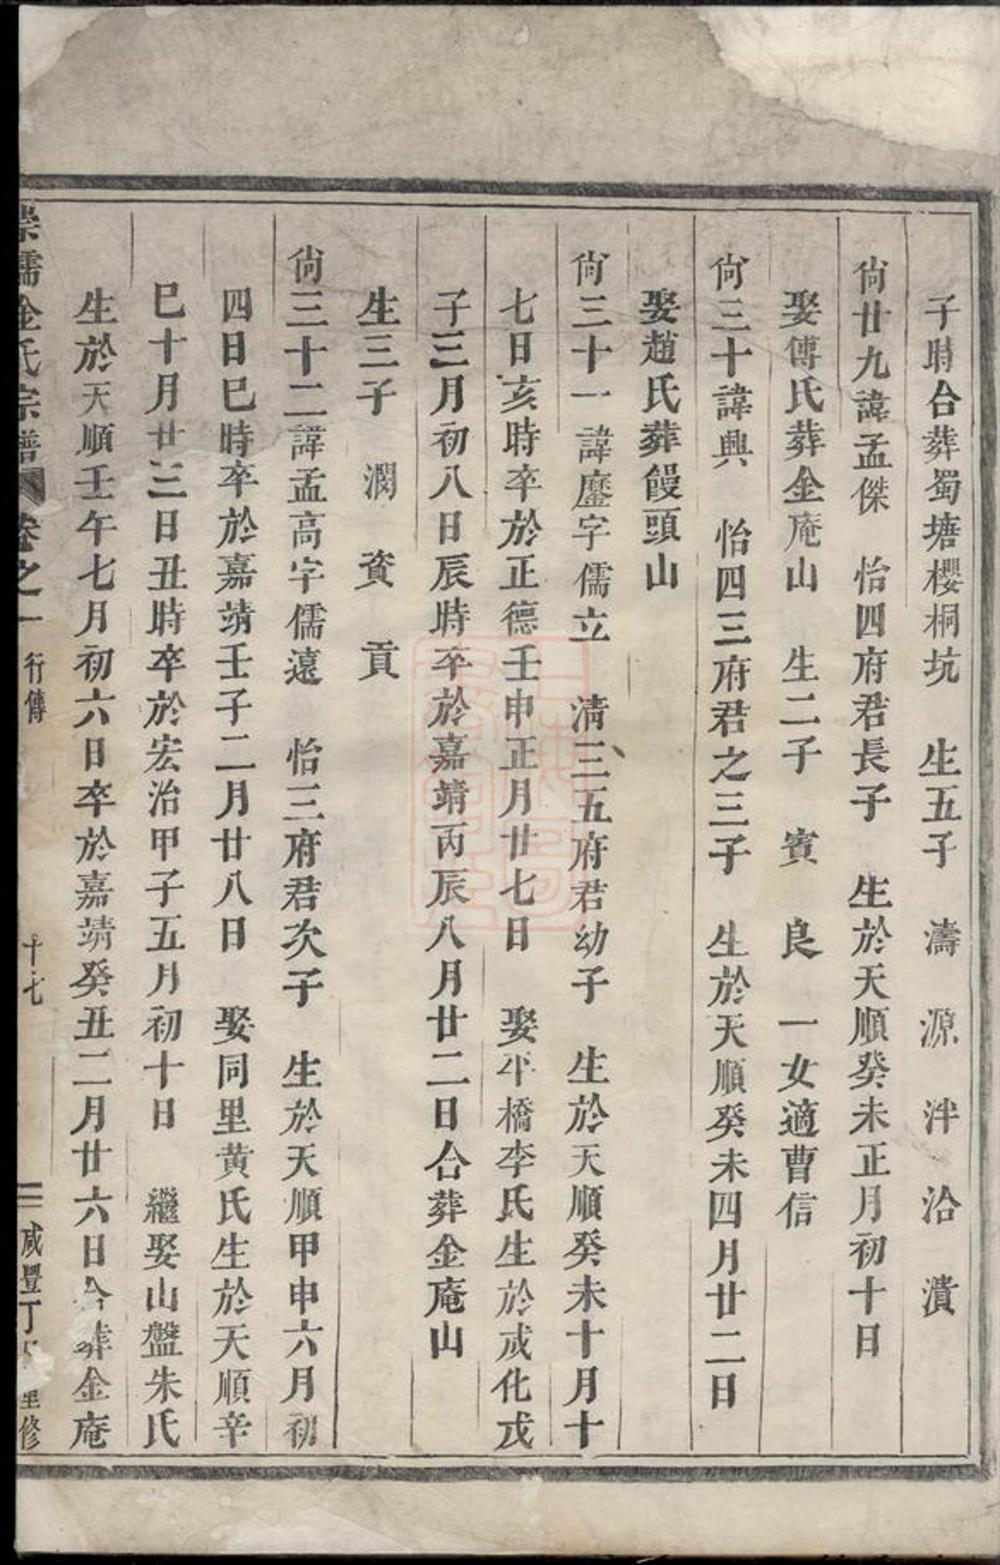 子時合葬蜀塘櫻桐坑　生五子　濤　源　泮　洽　濆
尙廿九諱孟傑　怡四府君長子　生於天順癸未正月初十日
娶傅氏葬金庵山　生二子　賓　良　一女適曹信
尙三十諱興　怡四三府君之三子　生於天順癸未四月廿二日
娶趙氏葬饅頭山
尙三十一諱廛字儒立　淸三五府君幼子　生於天順癸未十月十
七日亥時卒於正德壬申正月廿七日　娶平橋李氏生於成化戊
子三月初八日辰時卒於嘉靖丙辰八月廿二日合葬金庵山
生三子　澗　資　貢
尙三十二諱孟高字儒遠　怡三府君次子　生於天順甲申六月初
四日巳時卒於嘉靖壬子二月廿八日　娶同里黃氏生於天順辛
巳十月廿三日丑時卒於宏治甲子五月初十日　繼娶山盤朱氏
生於天順壬午七月初六日卒於嘉靖癸丑二月廿六日合葬金庵
崇儒金氏宗譜　卷之一　行傳　十七　咸豐丁　重修